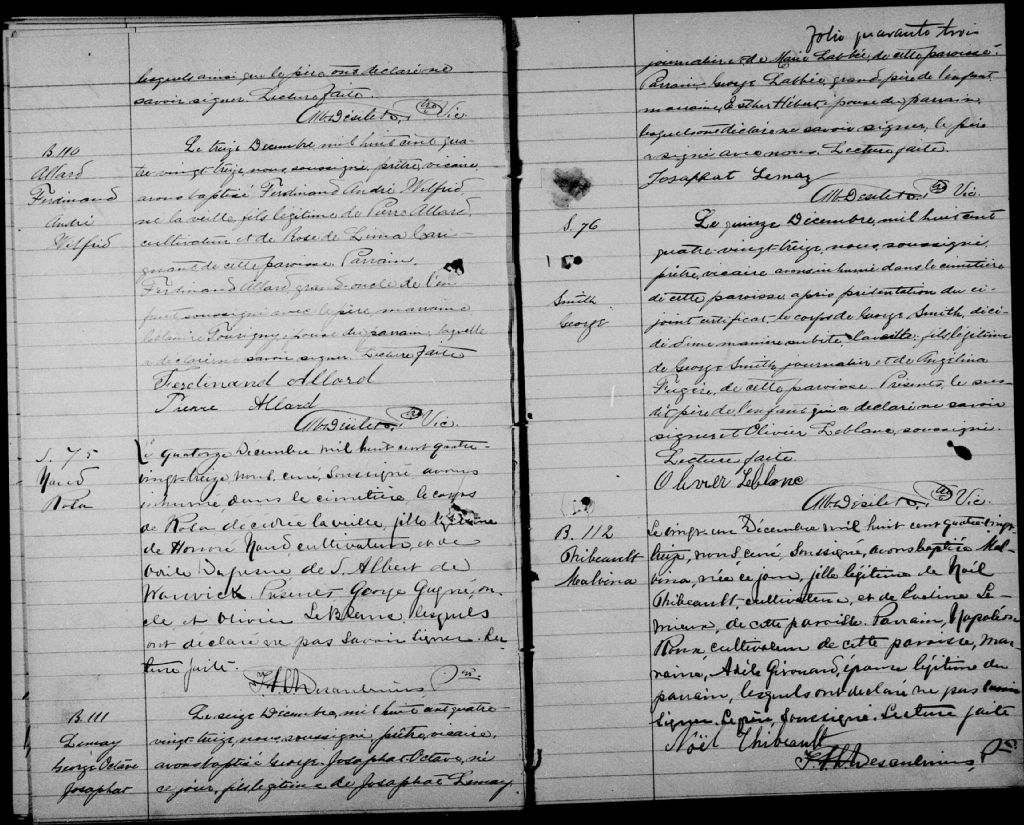 lesquels ainsi que le père ont déclaré ne
savoir signer. Lecture faite
Alb. Désilets, Ptre Vic.
B. 110
Allard
Ferdinand
André
Wilfrid
Le treize Décembre mil huit cent qua-
tre-vingt-treize, nous soussigné, prêtre, vicaire,
avons baptisé Ferdinand André Wilfrid
né la veille, fils légitime de Pierre Allard,
cultivateur et de Rose de Lima Cari-
gnant de cette paroisse. Parrain,
Ferdinand Allard grand-oncle de l'en-
fant soussigné avec le père, marraine
Tourigny épouse du parrain, laquelle
a déclaré ne savoir signer. Lecture faite
Ferdinand Allard
Pierre Allard
Alb. Désilets, Ptre Vic.
S. 75
Naud
Rosa
Le quatorze Décembre mil huit cent quatre-
vingt-treize nous, curé, soussigné avons
inhumé dans le cimetière le corps
de Rosa décédée la veille, fille légitime
de Honoré Naud, cultivateur, et de
Dufresne de S. Albert de
Warwick. Présents George Gagné, on-
cle et Olivier LeBlanc, lesquels
ont déclaré ne pas savoir signer. Lec-
ture faite.
Ptre.
B. 111
Lemay
George Octave
Josaphat
Le seize Décembre, mil huit cent quatre-
vingt-treize, nous, soussigné, prêtre, vicaire,
avons baptisé George, Josaphat Octave, né
ce jour, fils légitime de Josaphat Lemay
Folio quarante trois
journalier et de Marie Labbée, de cette paroisse.
Parrain, George Labbée, grand-père de l'enfant,
marraine, Esther Hébert, épouse du parrain,
lesquels ont déclaré ne savoir signer, le père
a signé avec nous. Lecture faite.
Josaphat Lemay
Alb. Désilets, Ptre Vic.
S. 76
Smith
George
Le quinze Décembre, mil huit cent
quatre-vingt-treize, nous, soussigné,
prêtre, vicaire avons inhumé dans le cimetière
de cette paroisse après présentation du ci-
joint certificat, le corps de George Smith, décé-
dé d'une manière subite, la veille, fils légitime
de George Smith, journalier et de Angélina
Fugère, de cette paroisse. Présents, le sus-
dit père de l'enfant qui a déclaré ne savoir
signer et Olivier Leblanc, soussigné.
Lecture faite.
Olivier Leblanc
Alb. Désilets, Ptre Vic.
B. 112
Thibeault
Malvina
Le vingt-un Décembre mil huit cent quatre-vingt-
treize, nous, curé, soussigné, avons baptisé Mal-
vina, née ce jour, fille légitime de Noël
Thibeault, cultivateur, et de Le-
mieux, de cette paroisse. Parrain, Napoléon
Roux, cultivateur de cette paroisse, mar-
raine, Adèle Girouard, épouse légitime du
parrain, lesquels ont déclaré ne pas savoir
signer. Le père, soussigné. Lecture faite
Noël Thibeault
Ptre.